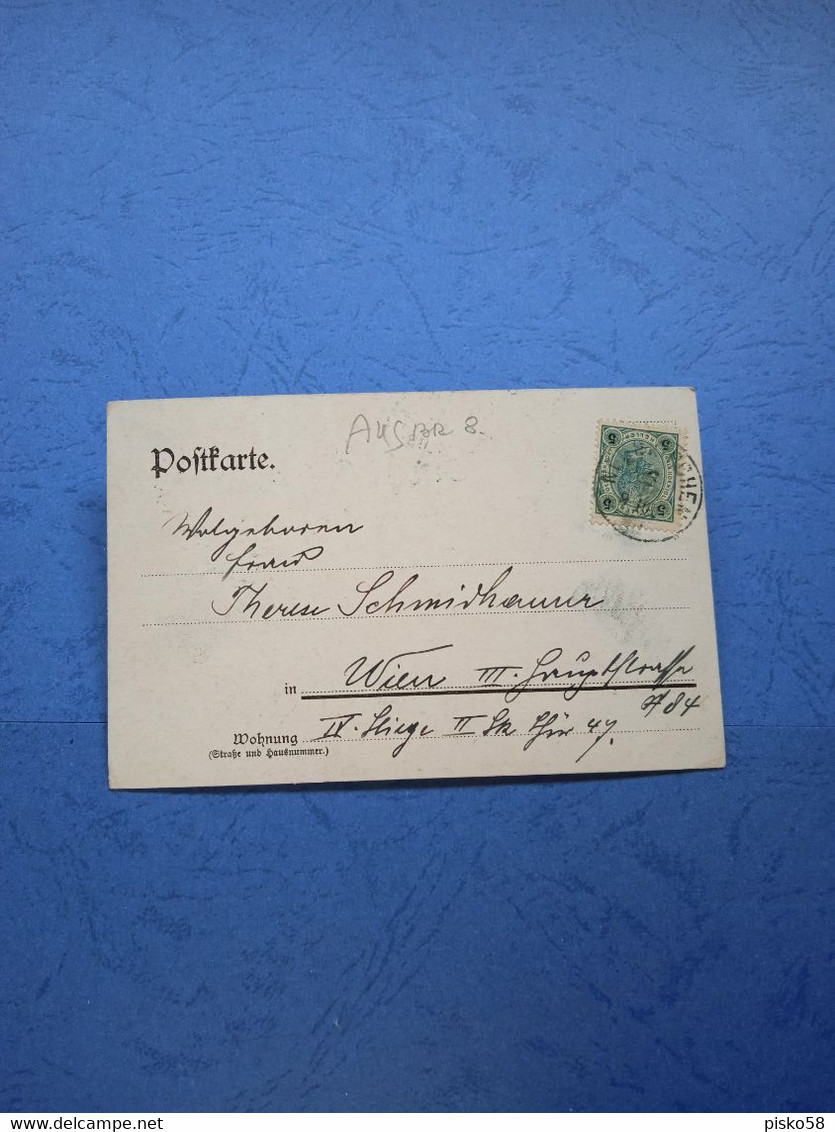 Postkarte.
Wolgeboren
Frau
Therese Schmidhauser
in Wien III. Hauptstrasse
# 84
Wohnung IV. Stiege II Stk Thür 47.
(Straße und Hausnummer.)
5 HELLER 5
5 5
pisko58